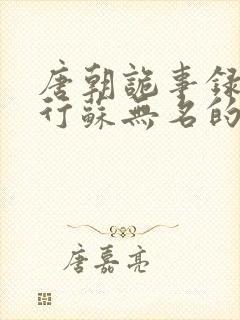 唐朝詭事録
行蘇無名的
唐嘉亮